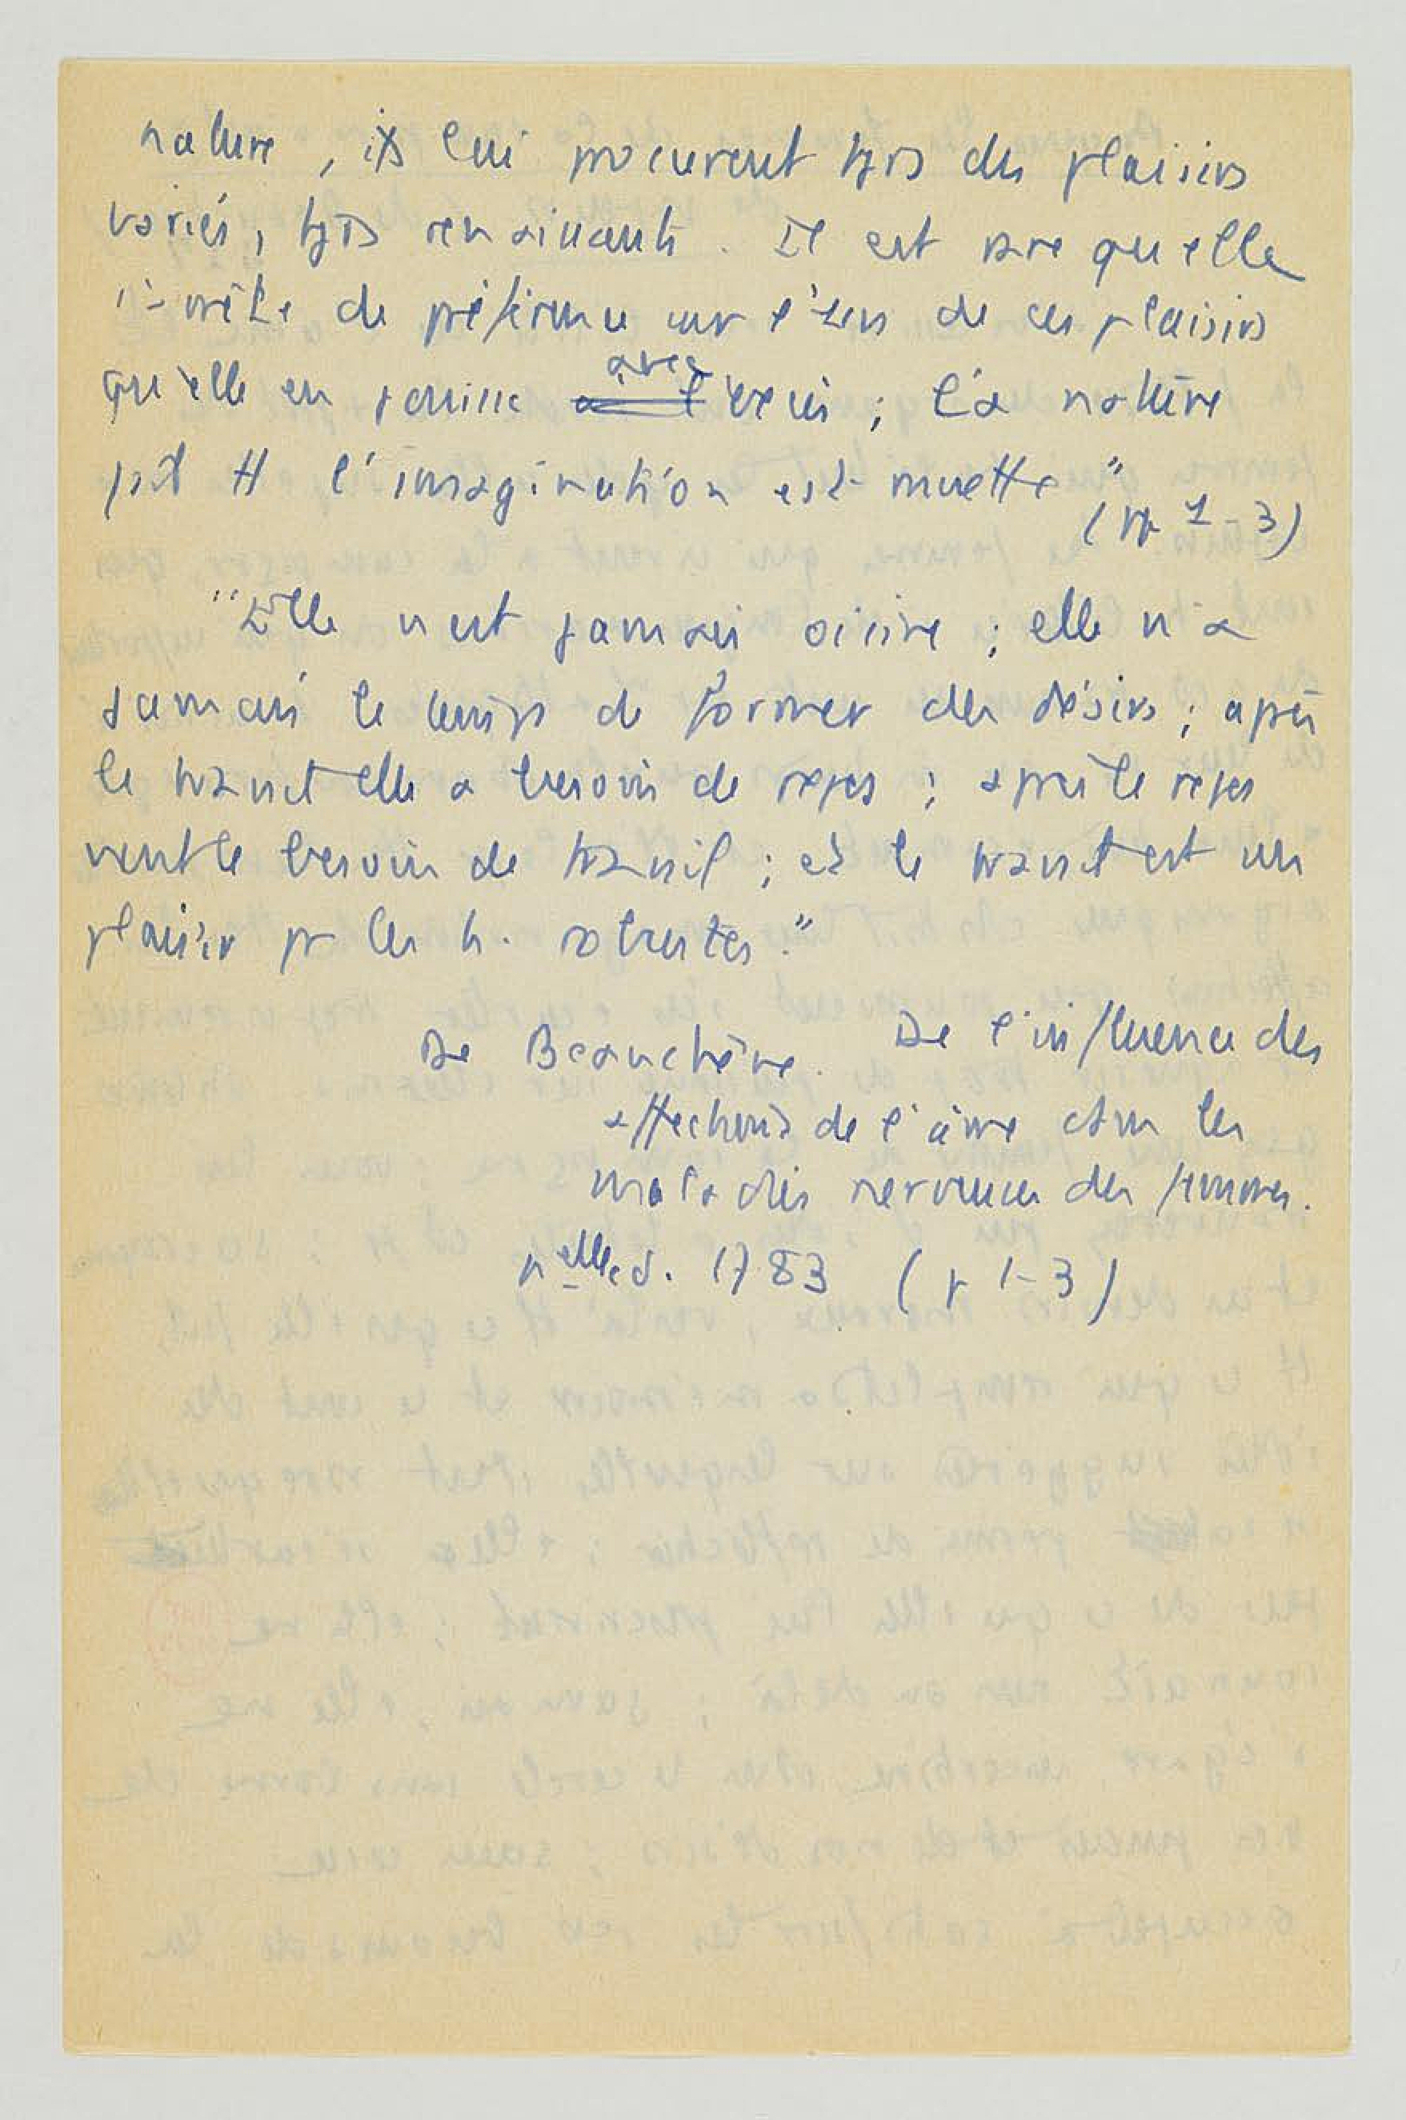 nature, ils lui procurent tjrs des plaisirs
variés, tjrs renaissants. Il est rare qu'elle
s'arrête de préférence sur l'un de ces plaisirs
qu'elle en jouisse avec excès ; là la nature
fait tt l'imagination est muette" (pp 1-3)
"Elle n'est jamais oisive ; elle n'a
jamais le temps de former des désirs ; après
le travail elle a besoin de repos ; après le repos
vient le besoin de travail ; et le travail est un
plaisir pr les h. robustes."
De Beauchêne. De l'influence des
affections de l'âme dans les
maladies nerveuses des femmes.
nelle éd. 1783 (p 1-3)